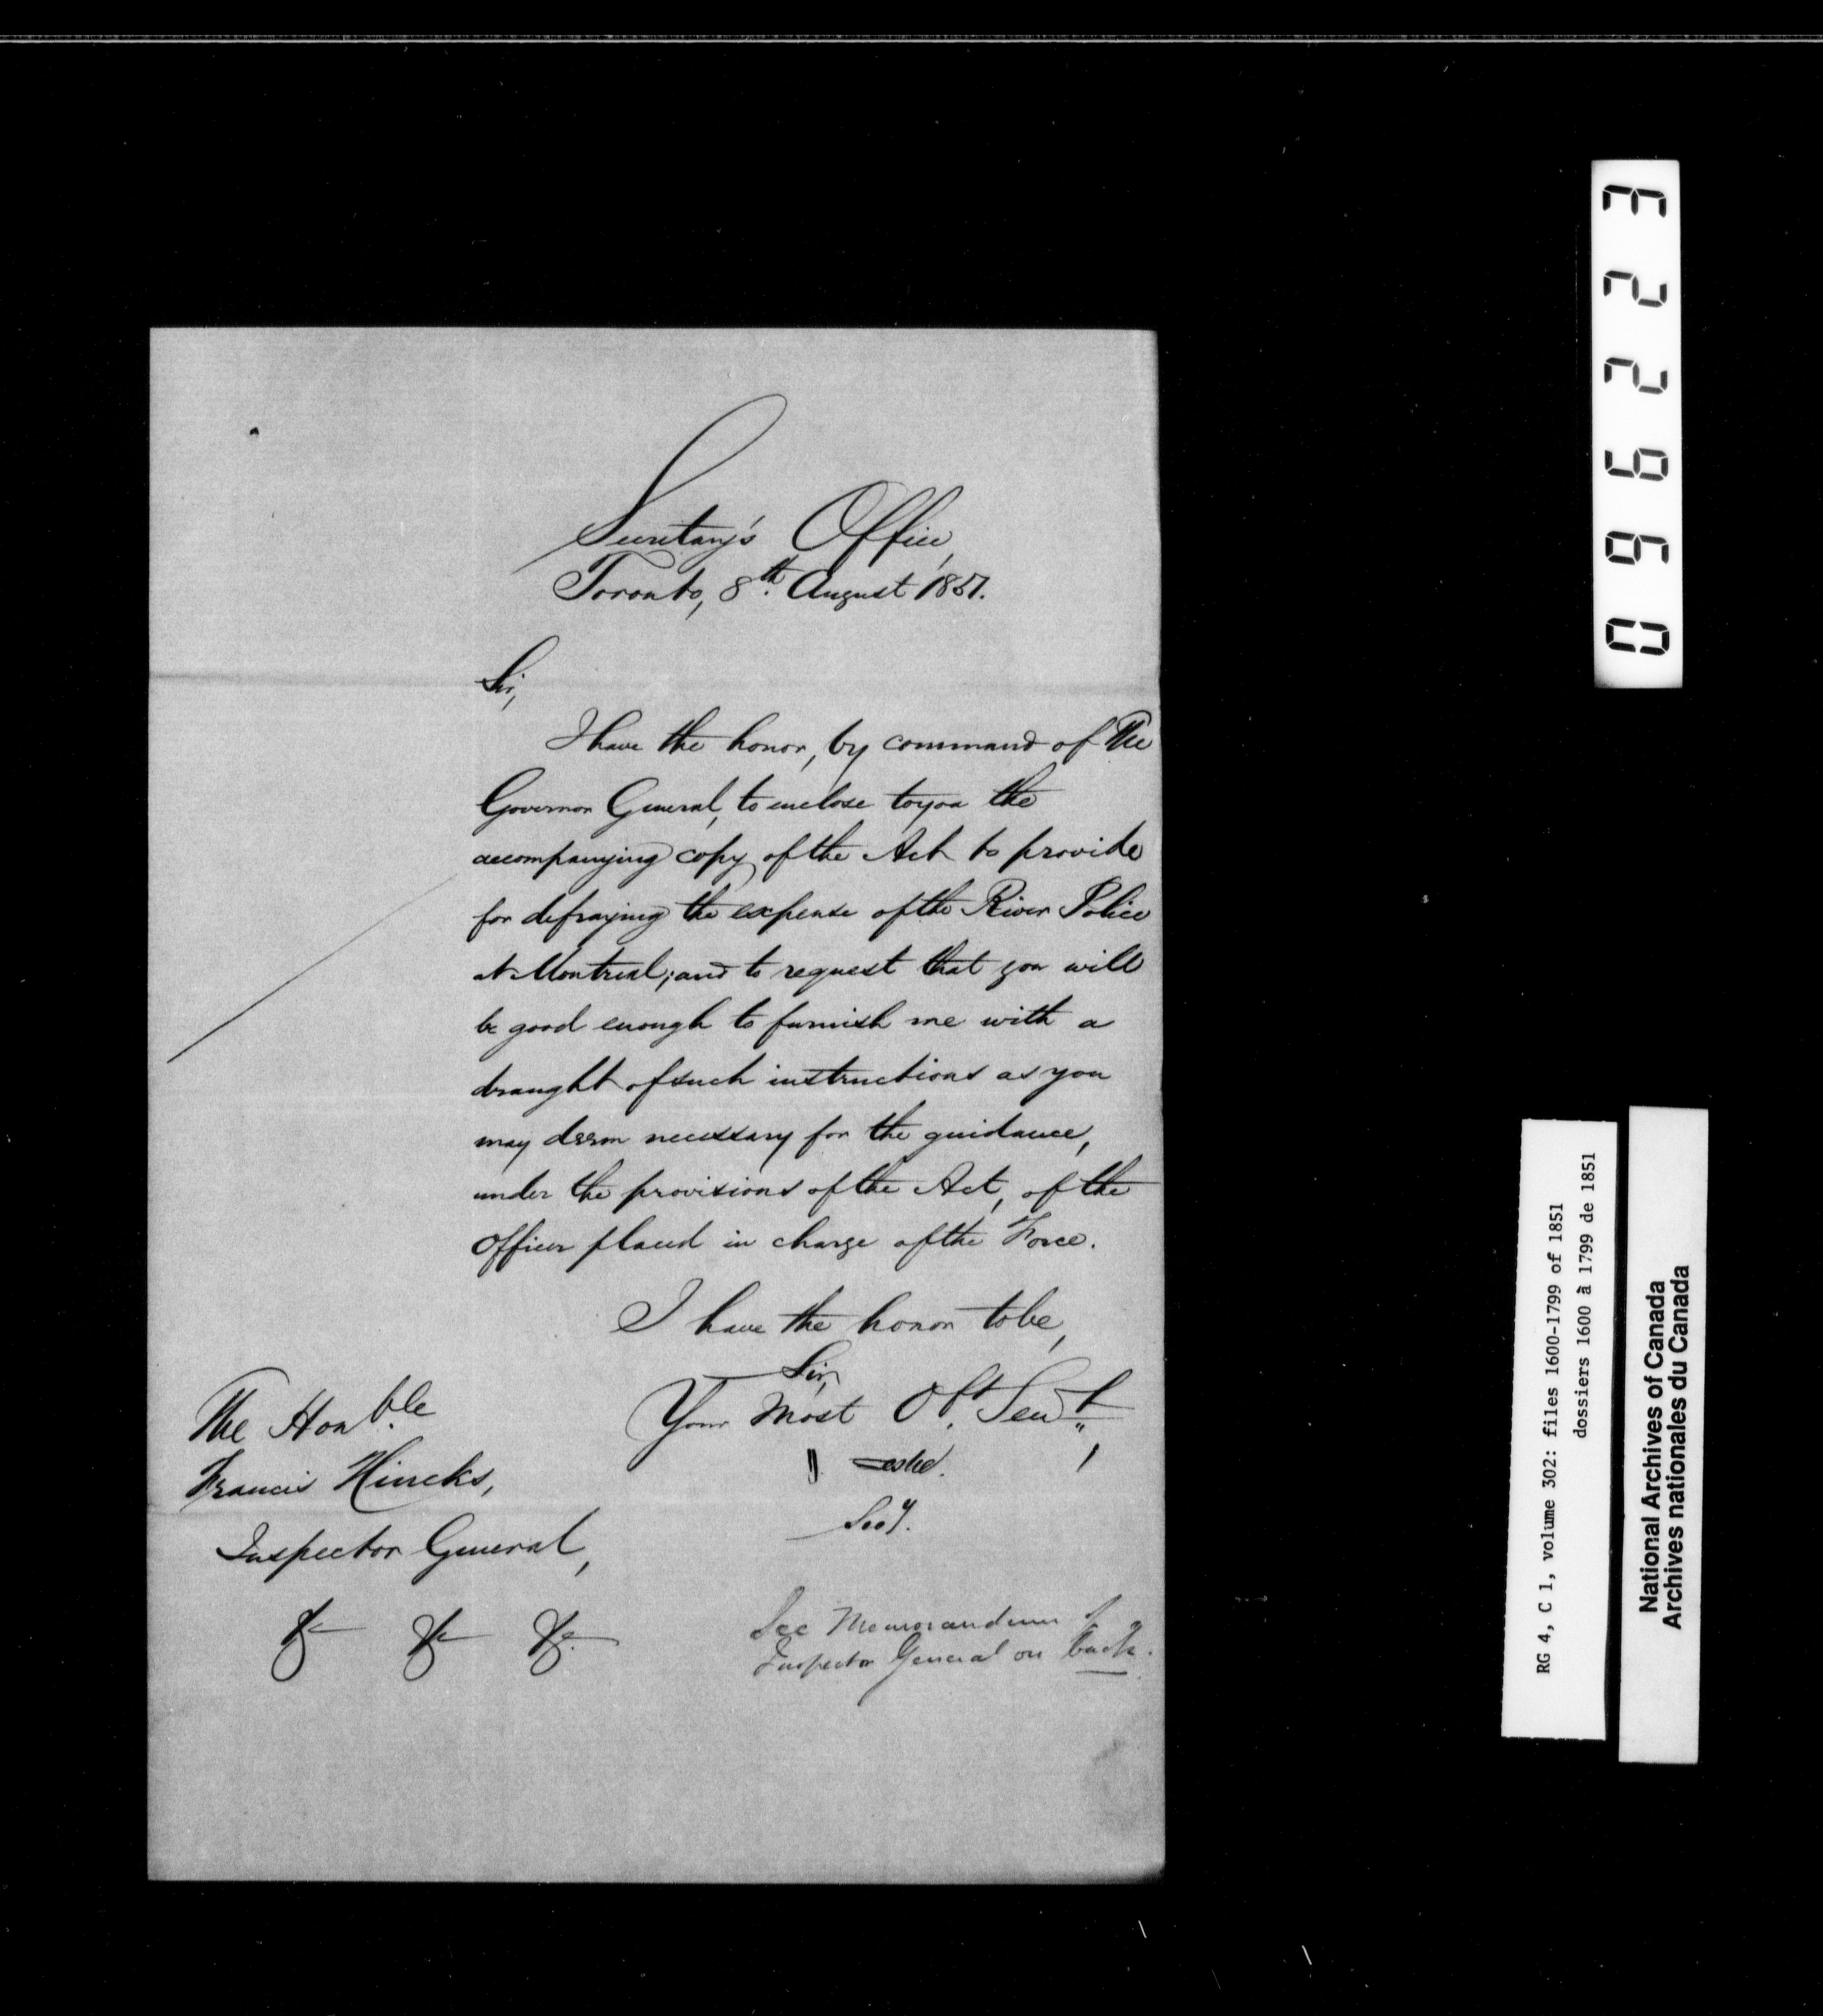 Secretary's Office,
Toronto, 8th. August 1851.
Sir,
I have the honor, by command of The
Governor General, to enclose to you the
accompanying copy of the Act to provide
for defraying the expense of the River Police
at Montreal; and to request that you will
be good enough to furnish me with a
draught of such instructions as you
may deem necessary for the guidance,
under the provisions of the Act, of the
Officer placed in charge of the Force.
I have the honor to be,
Sir,
Your Most Obt. Servt.
Secy.
The Honble.
Francis Hincks,
Inspector General,
&c &c &c.
See Memorandum of
Inspector General on back.
096223
RG 4, C 1, volume 302: files 1600-1799 of 1851
dossiers 1600 à 1799 de 1851
National Archives of Canada
Archives nationales du Canada